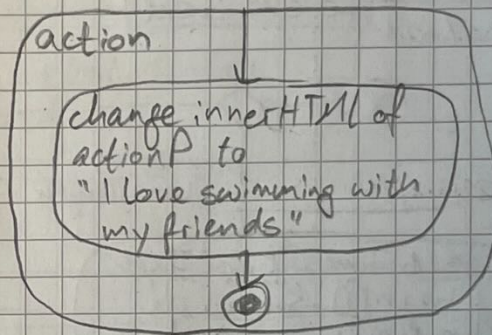 action
change innerHTML of
actionP to
"I love swimming with
my friends"